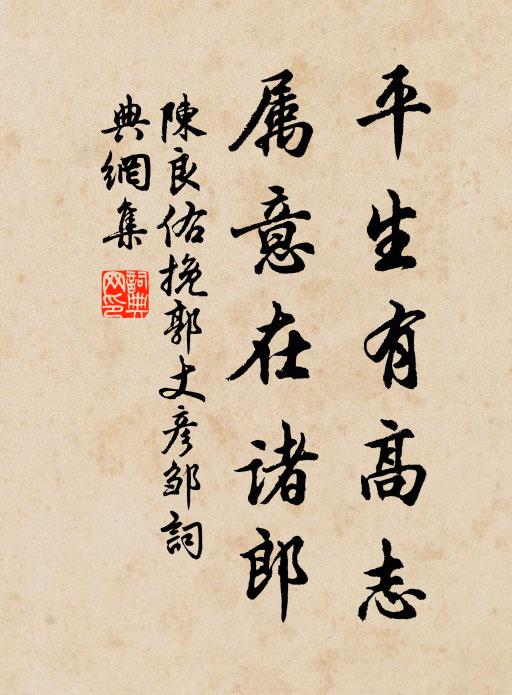 平生有高志
属意在诸郎
陳良佑挽郭丈彦邹詞
典網集
詞典网印